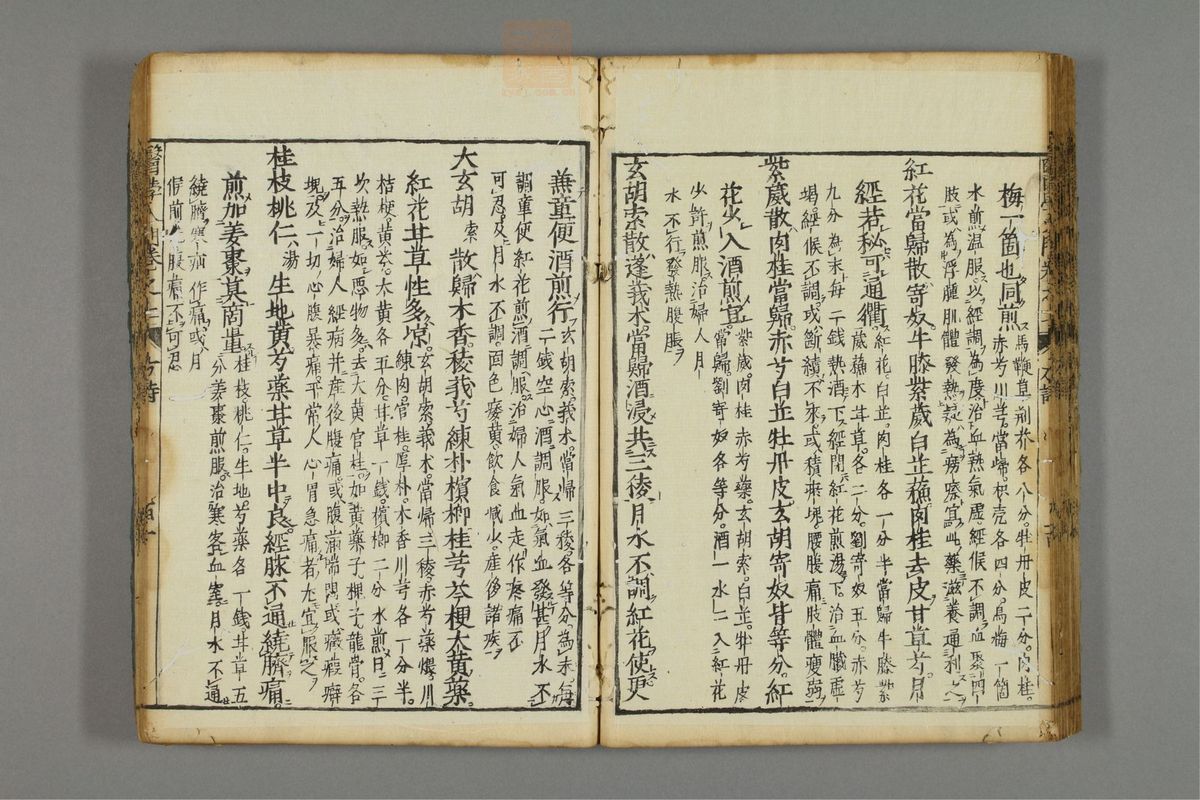 梅一箇也同煎
馬鞭草荆芥各八分。牡丹皮二分。肉桂。
赤芍川芎。當歸。枳壳各四分。烏梅一箇
水煎温服以經調為度治血熱氣虛經候不調血聚四
肢或為浮腫肌體發熱
為癆瘵宜此藥滋養通利
紅花當歸散寄奴牛膝紫葳白芷蘓肉桂去皮甘草芍月
經若秘可通衢
紅花。白芷。肉桂各一分半當歸牛膝紫
葳蘓木甘草。各二分。劉寄奴五分。赤芍
九分為末每二錢熱酒下經閉紅花煎湯下治血臟虛
竭經候不調或斷續不來或積瘀塊腰腹痛肢體瘦弱
紫葳散肉桂當歸赤芍白芷牡丹皮玄胡寄奴皆等分紅
花少入酒煎宜
紫葳。肉桂赤芍藥。玄胡索。白芷。牡丹皮
當歸。劉寄奴各等分。酒一水二入紅花
少許煎服治婦人月
水不行發熱腹脹
玄胡索散蓬莪朮當歸酒浸共三稜月水不調紅花使更
兼童便酒煎行
玄胡索。莪朮當歸三稜各等分為末每
二錢空心酒調服如氣血發甚月水不
調童便紅花煎酒調服治婦人氣血走作疼痛不
可忍及月水不調面色痿黄飲食減少産後諸疾
大玄胡索散歸木香稜莪芍練朴檳榔桂芎芩梗大黄藥
紅花甘草性多凉
玄胡索莪朮。當歸三稜赤芍藥
練肉官桂厚朴。木香川芎各一分半。
桔梗。黄芩。大黄各五分甘草一錢。檳榔二分水煎日三
次熱服如惡物多去大黄官桂加黄藥子槐子龍骨各
五分治婦人經病并産後腹痛或腹滿喘悶或癥瘕癖
塊及一切心腹暴痛平常人心胃急痛者尤宜服之
桂枝桃仁湯生地黄芍藥甘草半中良經脉不通繞臍痛
煎加姜棗莫商量
桂枝桃仁生地芍藥各一錢甘草五
分姜棗煎服治寒客血室月水不通
繞臍寒疝作痛或月
信前腹痛不可忍